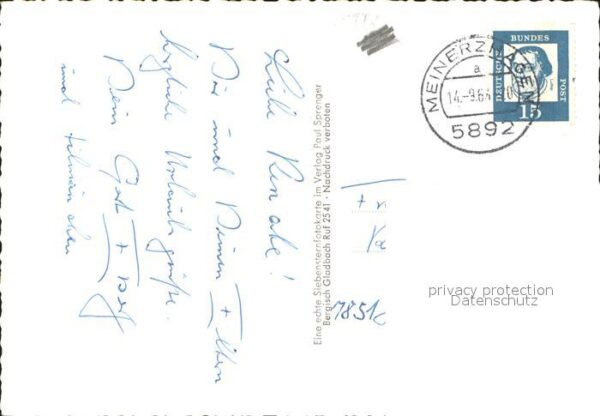 Liebe Renate!
Dir und Deinen Eltern
herzliche Urlaubsgrüße.
Dein Gert +
und
Eine echte Siebensternfotokarte im Verlag Paul Sprenger
Bergisch Gladbach Ruf 2541 · Nachdruck verboten
MEINERZHAGEN
a
14.-9.64
5892
DEUTSCHE
BUNDES
POST
15
privacy protection
Datenschutz